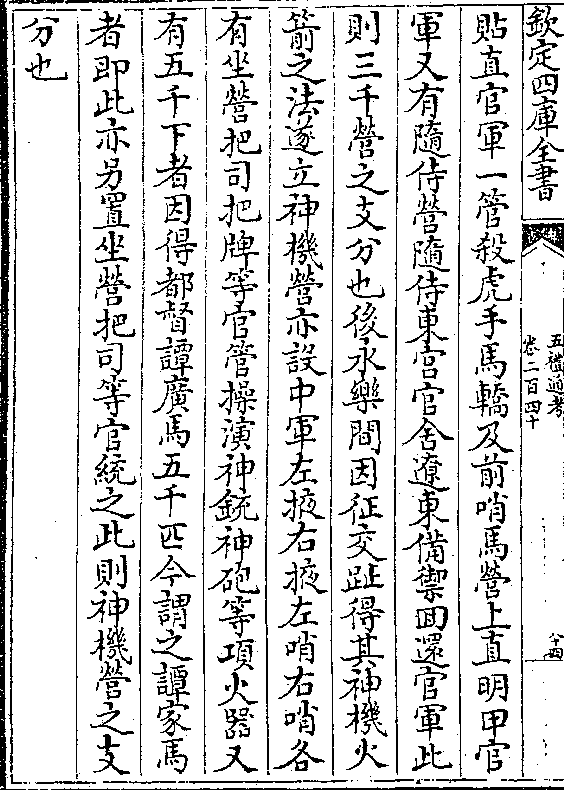 欽定四庫全書
五禮通考
卷二百四十
六十四
貼直官軍一管殺虎手馬轎及前哨馬營上直明甲官
軍又有隨侍營隨侍東宮官舍遼東備禦回還官軍此
則三千營之支分也後永樂間因征交趾得其神機火
箭之法遂立神機營亦設中軍左掖右掖左哨右哨各
有坐營把司把牌等官管操演神銃神砲等項火器又
有五千下者因得都督譚廣馬五千匹今謂之譚家馬
者即此亦另置坐營把司等官統之此則神機營之支
分也